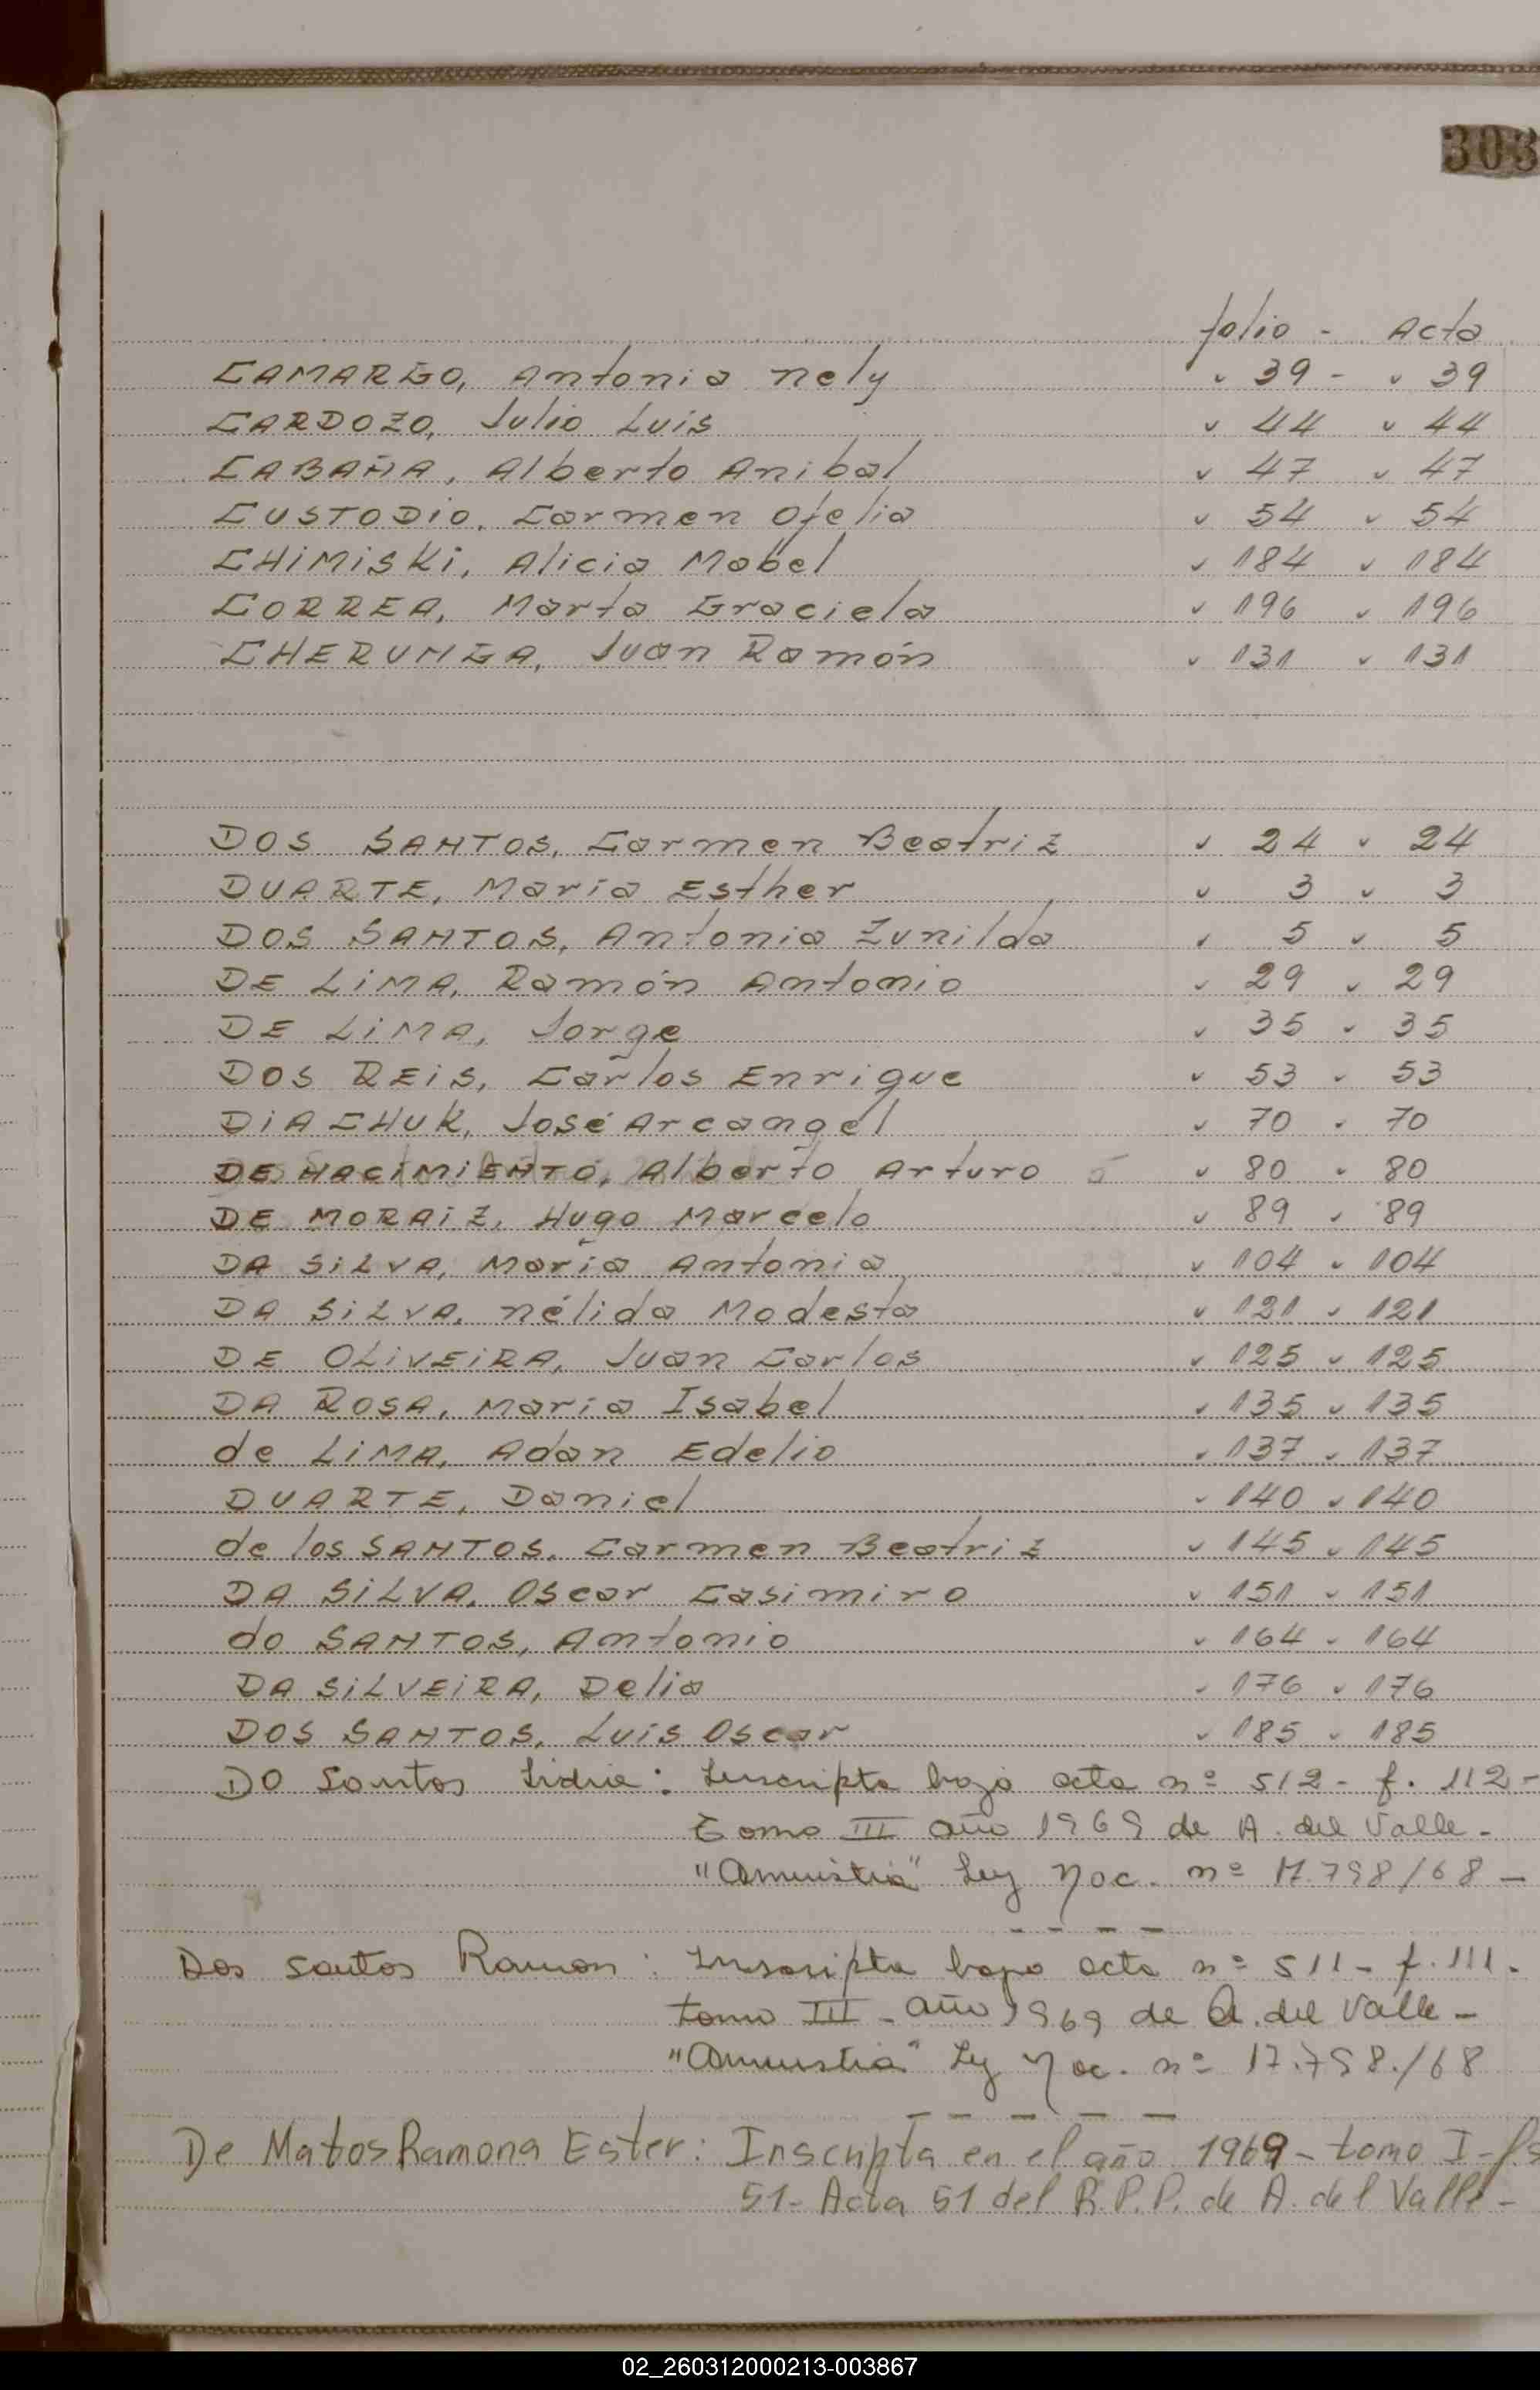 303
folio - Acta
CAMARGO, Antonia Nely 39 - 39
CARDOZO, Julio Luis 44 44
CABAÑA, Alberto Anibal 47 47
CUSTODIO, Carmen Ofelia 54 54
CHIMISKI, Alicia Mabel 184 184
CORREA, Marta Graciela 196 196
CHERUNGA, Juan Ramón 131 131
DOS SANTOS, Carmen Beatriz 24 24
DUARTE, María Esther 3 3
DOS SANTOS, Antonia Zunilda 5 5
DE LIMA, Ramón Antonio 29 29
DE LIMA, Jorge 35 35
DOS REIS, Carlos Enrique 53 53
DIACHUK, José Arcangel 70 70
DE NACIMIENTO, Alberto Arturo 80 80
DE MORAIZ, Hugo Marcelo 89 89
DA SILVA, María Antonia 104 104
DA SILVA, Nélida Modesta 121 121
DE OLIVEIRA, Juan Carlos 125 125
DA ROSA, María Isabel 135 135
de LIMA, Adan Edelio 137 137
DUARTE, Daniel 140 140
de los SANTOS, Carmen Beatriz 145 145
DA SILVA, Oscar Casimiro 151 151
do SANTOS, Antonio 164 164
DA SILVEIRA, Delia 176 176
DOS SANTOS, Luis Oscar 185 185
DO Santos Lidia: Inscripta bajo acta nº 512 - f. 112 -
Tomo III año 1969 de A. del Valle -
"Amnistia" Ley Nac. nº 17.798/68 -
Dos Santos Ramon: Inscripta bajo acta nº 511 - f. 111.
tomo III - año 1969 de A. del Valle -
"Amnistia" Ley Nac. nº 17.798./68
De Matos Ramona Ester: Inscripta en el año 1969 - tomo I -
51 - Acta 51 del R.P.P. de A. del Valle -
02_260312000213-003867